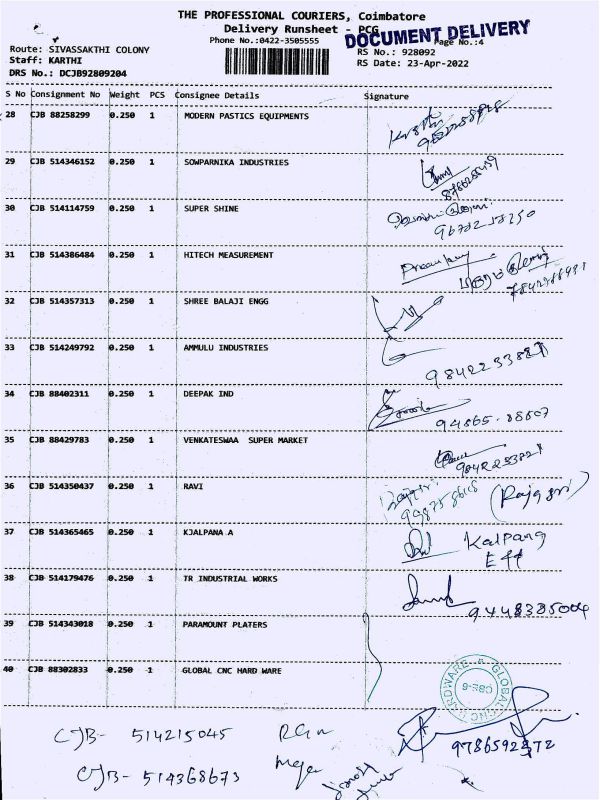 THE PROFESSIONAL COURIERS, Coimbatore
Delivery Runsheet - PCG
DOCUMENT DELIVERY
Phone No.:0422-3505555
Page No.:4
Route: SIVASSAKTHI COLONY
RS No.: 928092
Staff: KARTHI
RS Date: 23-Apr-2022
DRS No.: DCJB92809204
S No Consignment No Weight PCS Consignee Details Signature
28 CJB 88258299 0.250 1 MODERN PASTICS EQUIPMENTS
29 CJB 514346152 0.250 1 SOWPARNIKA INDUSTRIES
30 CJB 514114759 0.250 1 SUPER SHINE
31 CJB 514386484 0.250 1 HITECH MEASUREMENT
32 CJB 514357313 0.250 1 SHREE BALAJI ENGG
33 CJB 514249792 0.250 1 AMMULU INDUSTRIES
34 CJB 88402311 0.250 1 DEEPAK IND
35 CJB 88429783 0.250 1 VENKATESWAA SUPER MARKET
36 CJB 514350437 0.250 1 RAVI (Rajasri)
37 CJB 514365465 0.250 1 KJALPANA A Kalpana
38 CJB 514179476 0.250 1 TR INDUSTRIAL WORKS
9448385004
39 CJB 514343018 0.250 1 PARAMOUNT PLATERS
40 CJB 88302833 0.250 1 GLOBAL CNC HARD WARE
GLOBAL CNC HARDWARE
CBE-6
CJB- 514215045
9786592372
CJB- 514368673